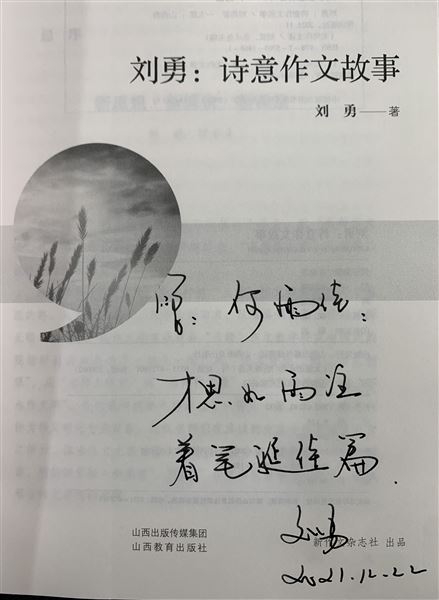 刘勇：诗意作文故事
刘 勇——著
何雨佳：
才思如雨注
着笔诞佳篇.
刘勇
2021.12.22
山西出版传媒集团
山西教育出版社
新作文杂志社 出品